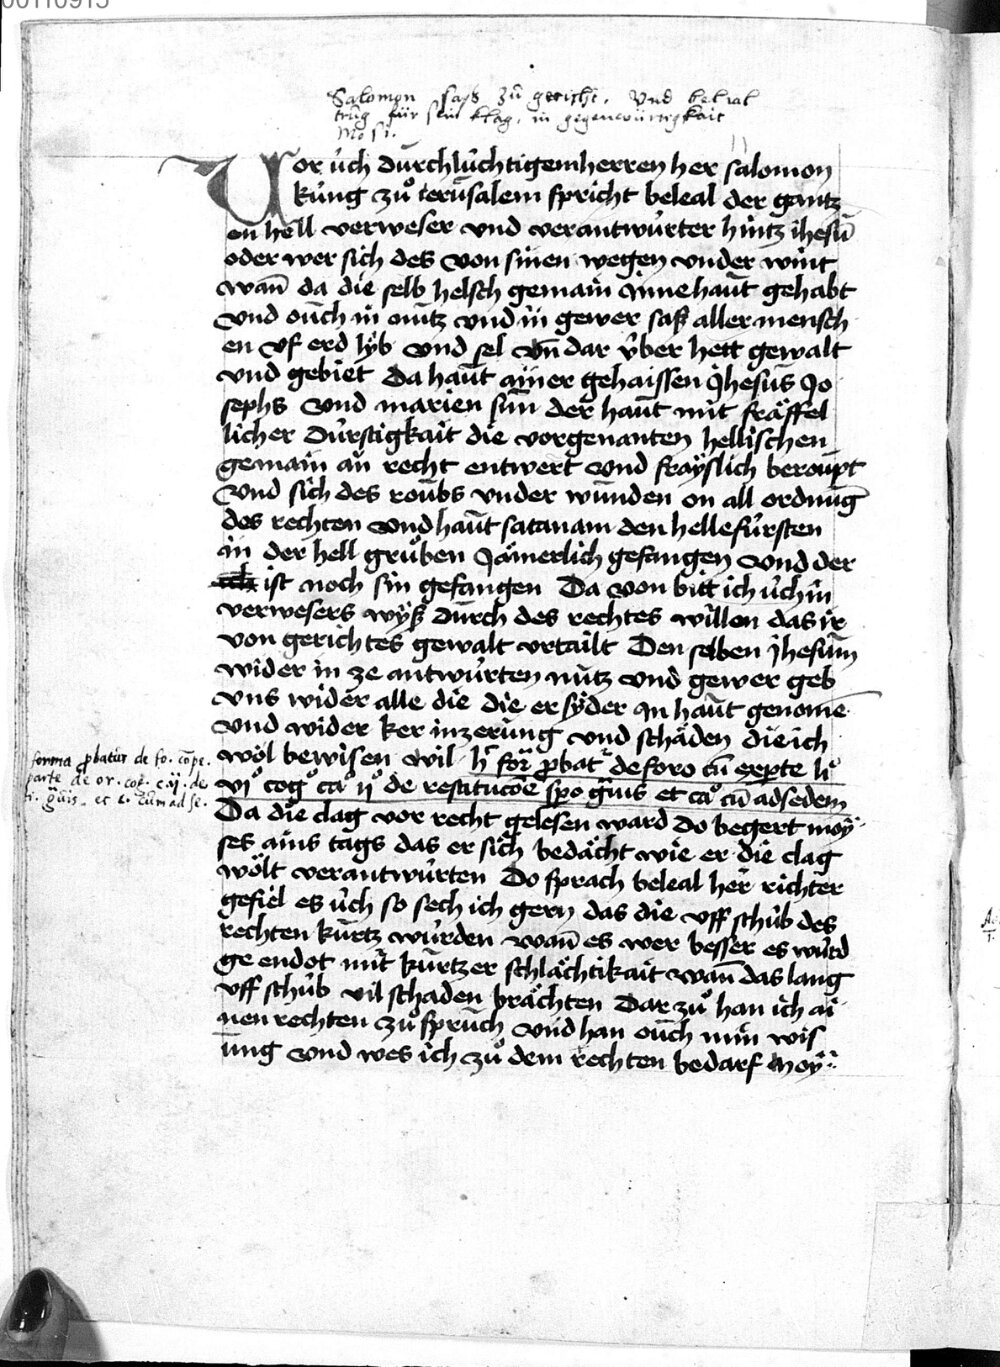 00110915
Salomon sasß zů gericht, Vnd belial
trůg für sein klag, in gegenwürtigkait
Mosi.
Vor ůch durchlůchtigem herren her salomon
kůng zů ierusalem spricht beleal der gantz
en hell verweser vnd verantwůrter hintz ihesū
oder wer sich des von sinen wegen vnder wint
wan̄ da die selb helsch gemain Inne haut gehabt
vnd ouch in nutz vnd in gewer saß aller mensch
en vf erd lÿb vnd sel vn̄ dar v̊ber hett gewalt
vnd gebiet Da haut ainer gehaissen Jhesus Jo
sephs vnd marien sun der haut mit fräffel
licher důrstigkait die vorgenanten hellischen
gemain an recht entwert vnd fraÿslich beroupt
vnd sich des roubs vnder wunden on all ordnūg
des rechten vnd haut satanam den helle fůrsten
in der hell grůben Jämerlich gefangen vnd der
ist noch sin gefangen Da von bitt ich ůch in
verwesers wÿß durch des rechtes willen das ir
von gerichtes gewalt vrtailt Den selben Jhesum
wider in ze antwůrten nutz vnd gewer geb
vns wider alle die die er sÿder In haut genome
vnd wider ker in zerung vnd schäden die ich
wol bewisen wil h̄ for̄ ꝓbat̄ de foro cū expte
de restitucōe spo
et cå cū ad sedem
forma ꝓbatur de fo. cōpe.
parte de or. cog. c. ij. de
ad se.
Da die clag vor recht gelesen ward do begert moÿ
ses ains tags das er sich bedächt wie er die clag
wölt verantwůrten Do sprach beleal her richter
gefiel es ůch so sech ich gern das die vff schůb des
rechten kurtz wurden wan̄ es wer besser es wůrd
ge endot mit kurtzer schlächtikait wan̄ das lang
vff schůb vil schaden brächten Dar zů han ich ai
nen rechten zů spruch vnd han ouch min wis
ung vnd wes ich zů dem rechten bedarf moÿ